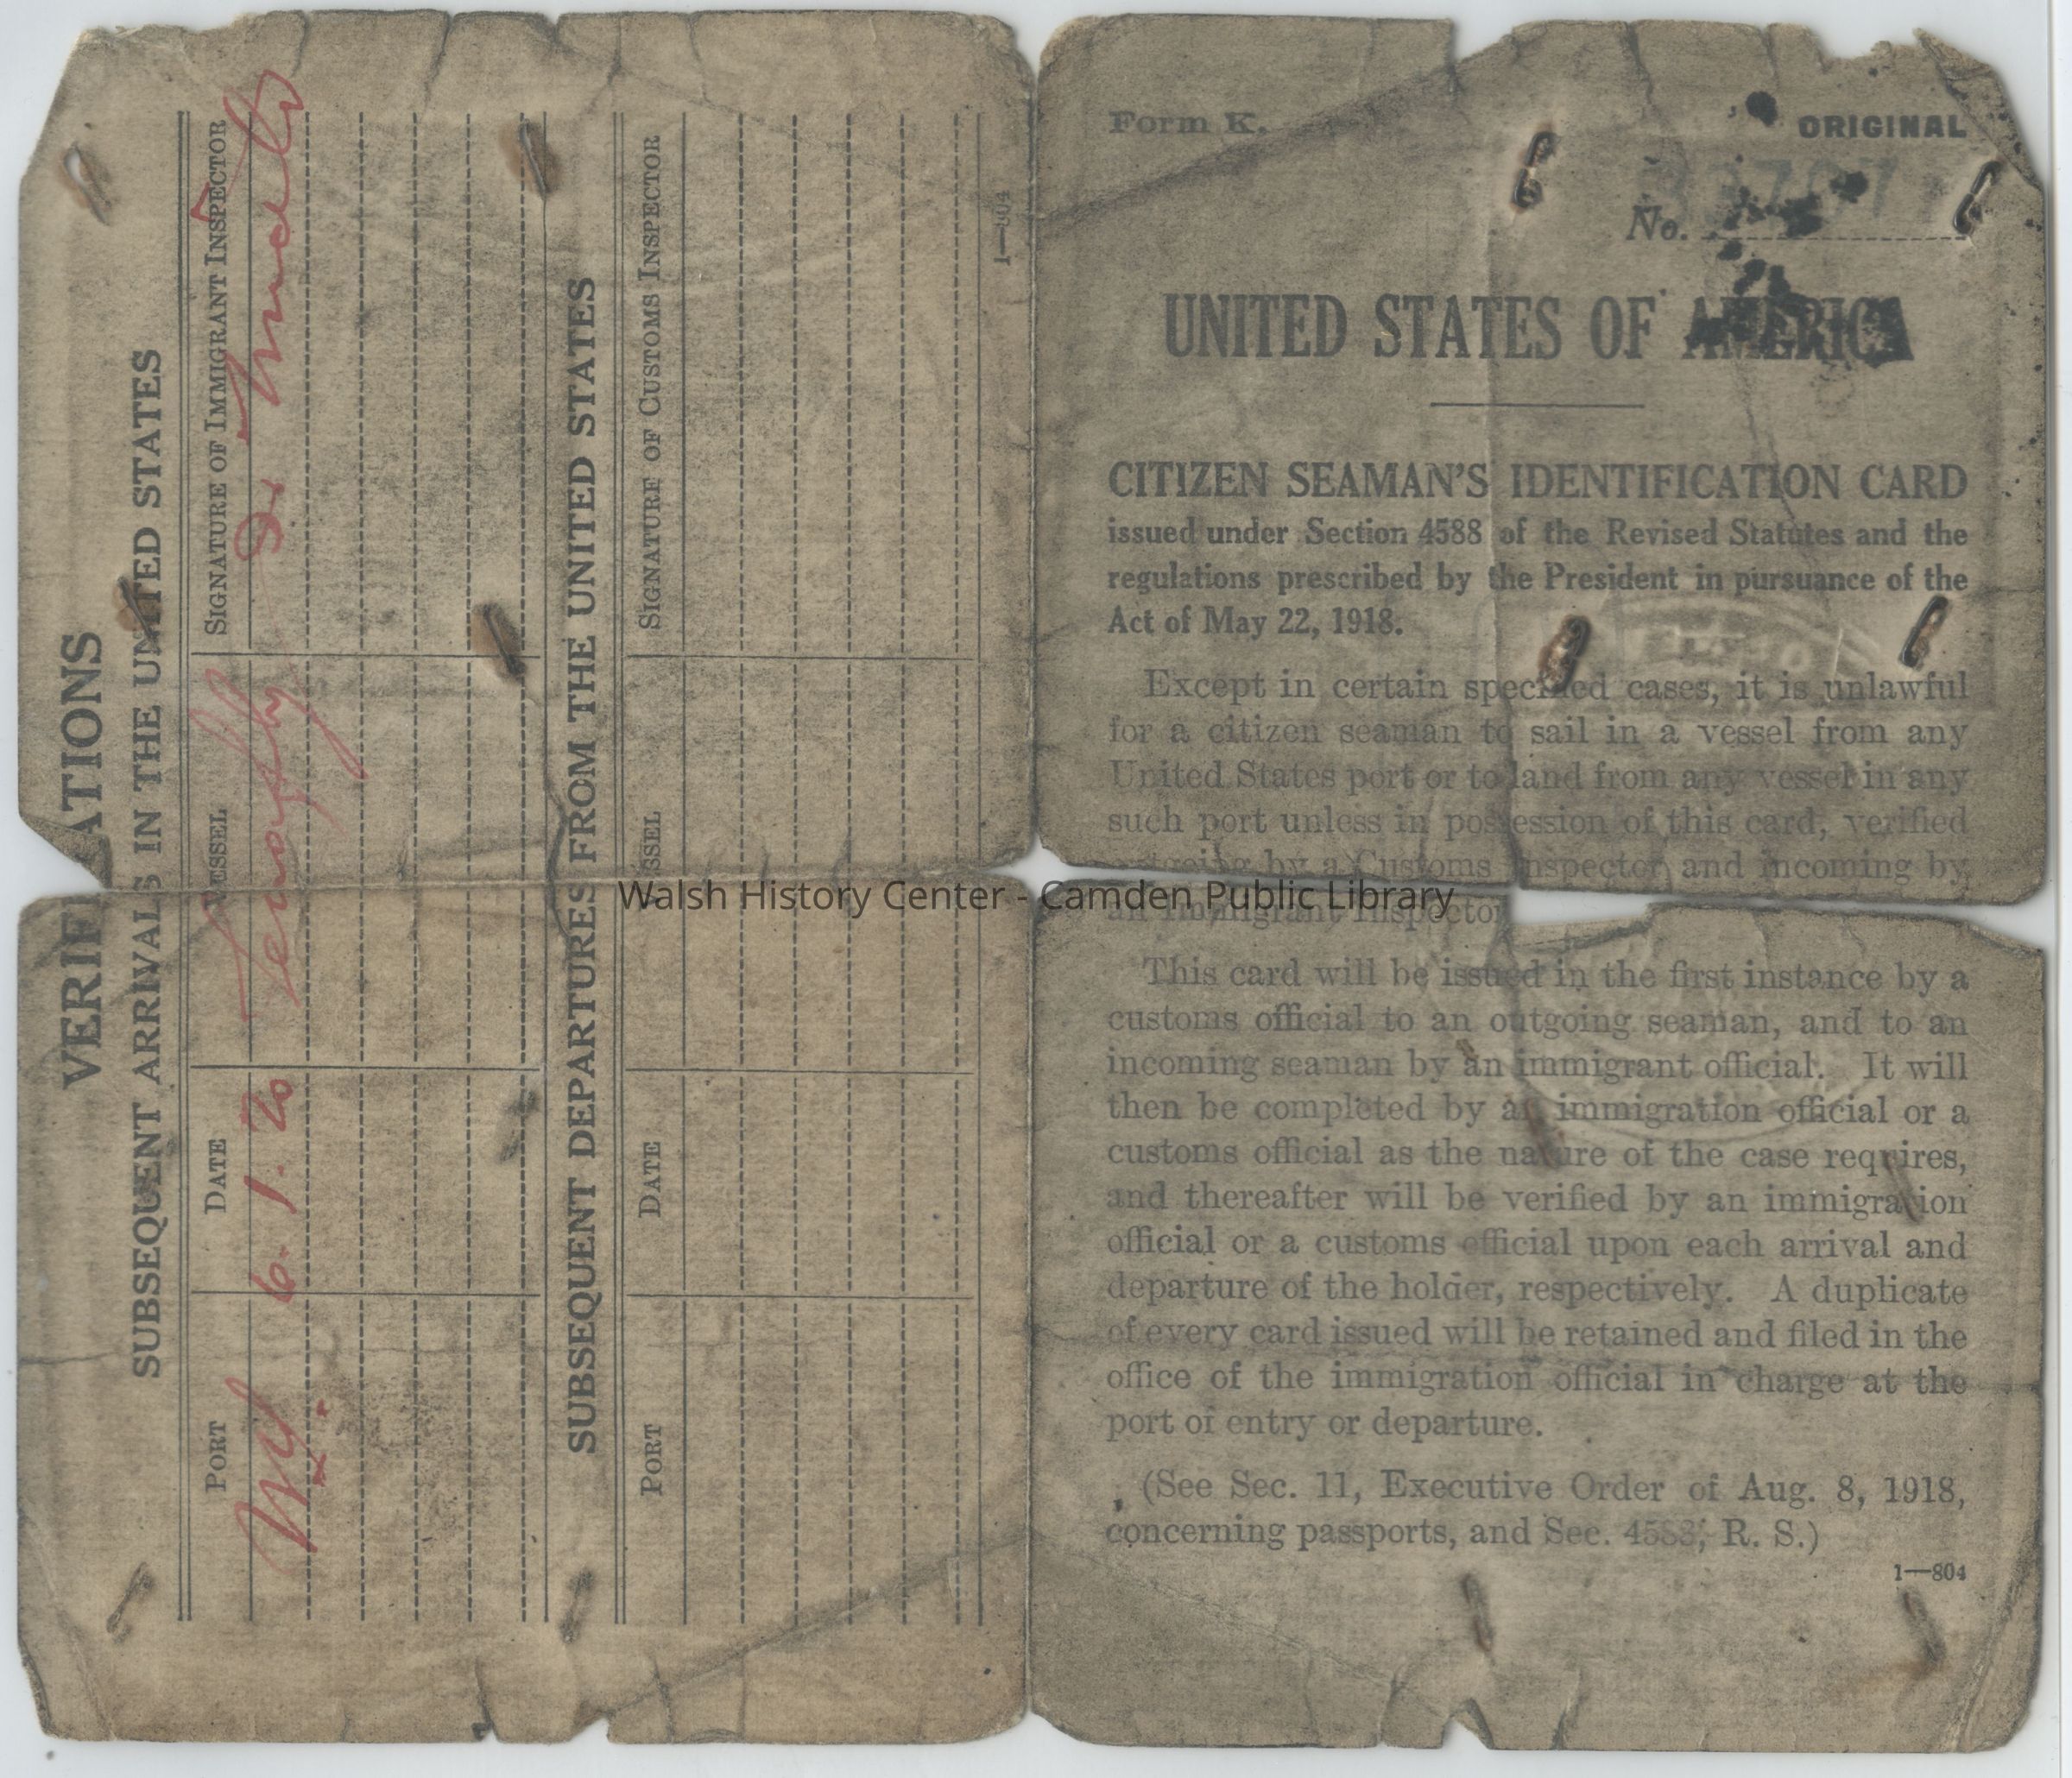 VERIFICATIONS
SUBSEQUENT ARRIVALS IN THE UNITED STATES
PORT DATE VESSEL SIGNATURE OF IMMIGRANT INSPECTOR
NY 6. 1. 20 Tenafly
SUBSEQUENT DEPARTURES FROM THE UNITED STATES
PORT DATE VESSEL SIGNATURE OF CUSTOMS INSPECTOR
1—804
Form K.
ORIGINAL
No.
UNITED STATES OF AMERICA
CITIZEN SEAMAN'S IDENTIFICATION CARD
issued under Section 4588 of the Revised Statutes and the
regulations prescribed by the President in pursuance of the
Act of May 22, 1918.
Except in certain specified cases, it is unlawful
for a citizen seaman to sail in a vessel from any
United States port or to land from any vessel in any
such port unless in possession of this card, verified
outgoing by a Customs Inspector and incoming by
an Immigrant Inspector
This card will be issued in the first instance by a
customs official to an outgoing seaman, and to an
incoming seaman by an immigrant official. It will
then be completed by an immigration official or a
customs official as the nature of the case requires,
and thereafter will be verified by an immigration
official or a customs official upon each arrival and
departure of the holder, respectively. A duplicate
of every card issued will be retained and filed in the
office of the immigration official in charge at the
port of entry or departure.
(See Sec. 11, Executive Order of Aug. 8, 1918,
concerning passports, and Sec. 4588, R. S.)
1—804
Walsh History Center - Camden Public Library